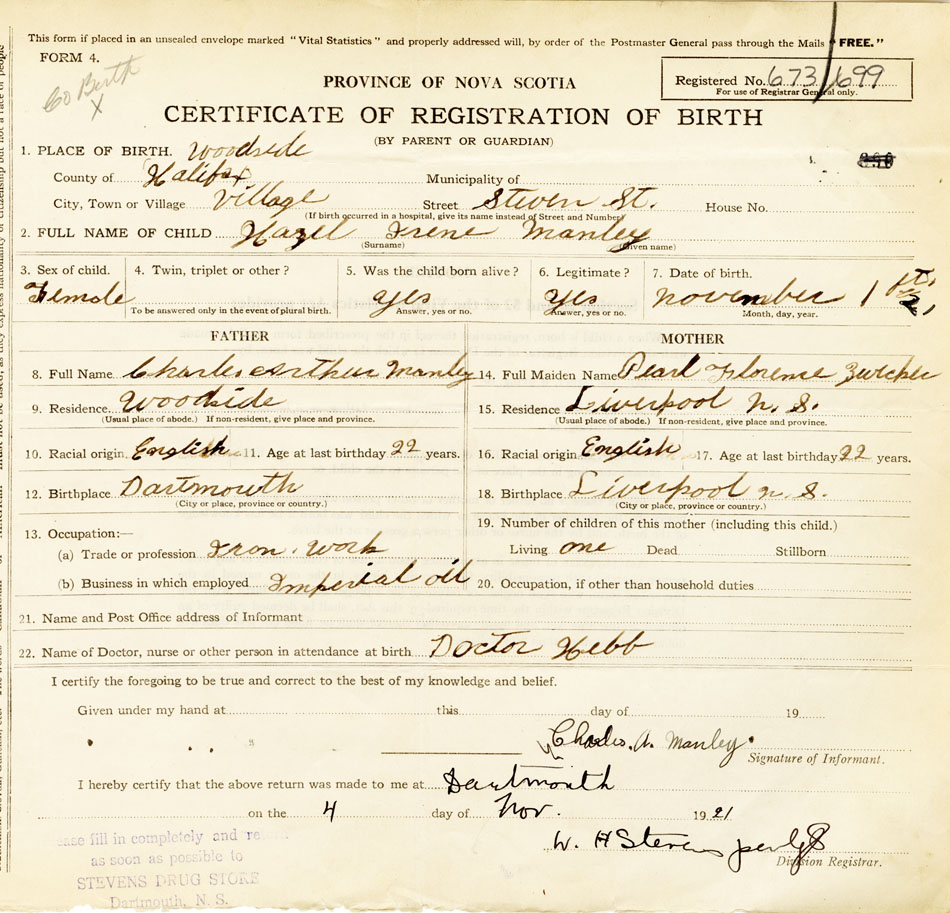 This form if placed in an unsealed envelope marked "Vital Statistics" and properly addressed will, by order of the Postmaster General pass through the Mails "FREE."
FORM 4.
Co Birth
X
PROVINCE OF NOVA SCOTIA
Registered No. 673/699
For use of Registrar General only.
CERTIFICATE OF REGISTRATION OF BIRTH
(BY PARENT OR GUARDIAN)
1. PLACE OF BIRTH. Woodside
County of Halifax Municipality of
City, Town or Village Village Street Steven St. House No.
(If birth occurred in a hospital, give its name instead of Street and Number)
2. FULL NAME OF CHILD Hazel Irene Manley
(Surname) (Given name)
3. Sex of child. 4. Twin, triplet or other? 5. Was the child born alive? 6. Legitimate? 7. Date of birth.
Female yes yes November 1
To be answered only in the event of plural birth. Answer, yes or no. Answer, yes or no. Month, day, year.
FATHER MOTHER
8. Full Name Charles Arthur Manley 14. Full Maiden Name Pearl Florence Zwicker
9. Residence Woodside 15. Residence Liverpool N. S.
(Usual place of abode.) If non-resident, give place and province. (Usual place of abode.) If non-resident, give place and province.
10. Racial origin English 11. Age at last birthday 22 years. 16. Racial origin English 17. Age at last birthday 22 years.
12. Birthplace Dartmouth 18. Birthplace Liverpool N. S.
(City or place, province or country.) (City or place, province or country.)
13. Occupation:— 19. Number of children of this mother (including this child.)
(a) Trade or profession Iron. Work Living one Dead Stillborn
(b) Business in which employed Imperial oil 20. Occupation, if other than household duties
21. Name and Post Office address of Informant
22. Name of Doctor, nurse or other person in attendance at birth Doctor Hebb
I certify the foregoing to be true and correct to the best of my knowledge and belief.
Given under my hand at this day of 19
Charles. A. Manley
Signature of Informant.
I hereby certify that the above return was made to me at Dartmouth
on the 4 day of Nov. 1921
W. H Stevens per
Division Registrar.
ease fill in completely and
as soon as possible to
STEVENS DRUG STORE
Dartmouth, N. S.